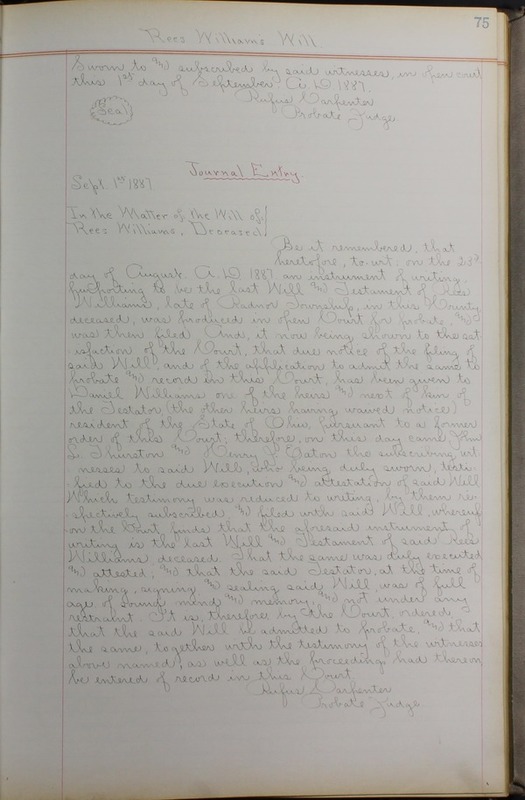 75
Rees William's Will.
Sworn to and subscribed by said witnesses, in open court
this 1st day of September A.D 1887.
Rufus Carpenter
Probate Judge
Seal
Journal Entry.
Sept. 1st 1887
In the Matter of the Will of
Rees Williams, Deceased.
Be it remembered, that
heretofore, to-wit; on the 23rd
day of August A.D 1887 an instrument of writing,
purporting to be the last Will and Testament of Rees
Williams, late of Radnor Township, in this County
deceased, was produced in open Court for probate, and
was then filed. And, it now being shown to the sat-
isfaction of the Court, that due notice of the filing of
said Will, and of the application to admit the same to
probate and record in this Court, has been given to
Daniel Williams on of the heirs and next of kin of
the Testator (the other heirs having waived notice)
resident of the State of Ohio, pursuant to a former
order of this Court; therefore, on this day came John
S. Thurston and Henry Eaton the subscribing wit-
nesses to said Will, who being duly sworn, testi-
fied to the due execution and attestation of said Will
Which testimony was reduced to writing, by them re-
spectively subscribed, and filed with said Will, whereup-
on the Court finds that the aforesaid instrument of
writing is the last Will and Testament of said Rees
Williams deceased. That the same was duly executed
and attested; and that the said Testator, at the time of
making, signing and sealing said Will was of full
age of sound mind and memory, and not under any
restraint. It is, therefore by the Court, ordered,
that the said Will be admitted to probate. and that
the same, together with the testimony of the witnesses
above named, as well as the proceedings had thereon
be entered of record in this Court.
Rufus Carpenter
Probate Judge